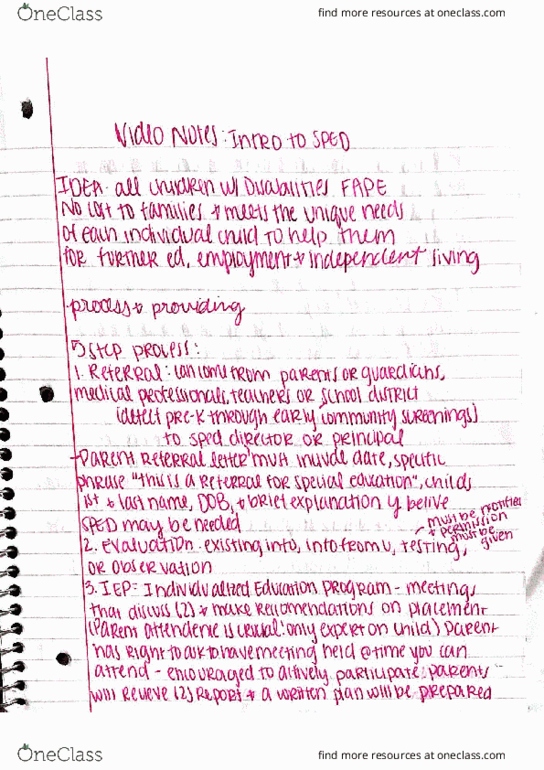 OneClass
find more resources at oneclass.com
Video Notes: Intro to SPED
IDEA: all children w/ Disabilities FAPE
No cost to families + meets the unique needs
of each individual child to help them
for further ed, employment + independent living
process + providing
5 step process:
1. Referral: can come from parents or guardians,
medical professionals, teachers or school district
(detect pre-K through early community screenings)
to sped director or principal
Parent Referral letter must include date, specific
phrase "this is a referral for special education", childs
1st + last name, DOB, + brief explanation y belive
SPED may be needed
- must be notified
+ permission
must be
given
2. Evaluation - existing info, info from u, testing,
or observation
3. IEP = Individualized Education Program - meetings
that discuss (2) + make recomendations on placement
(Parent attendence is crucial: only expert on child) Parent
has right to ask to have meeting held @ time you can
attend - encouraged to actively participate. parents
will recieve (2) Report + a written plan will be prepared
OneClass
find more resources at oneclass.com